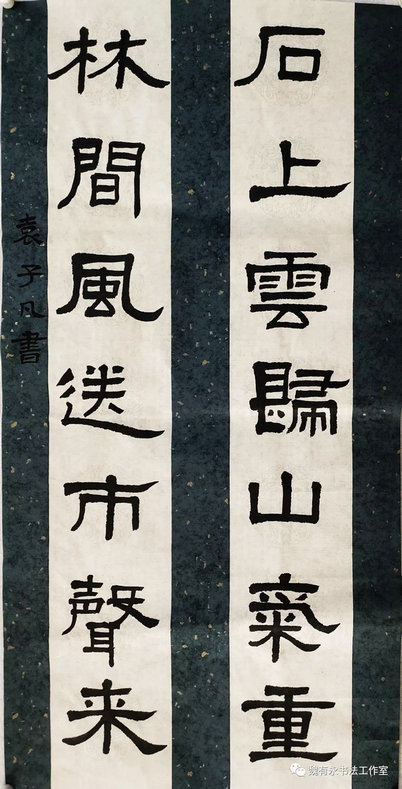 石上雲歸山氣重
林間風送市聲来
袁子凡書
魏有永书法工作室